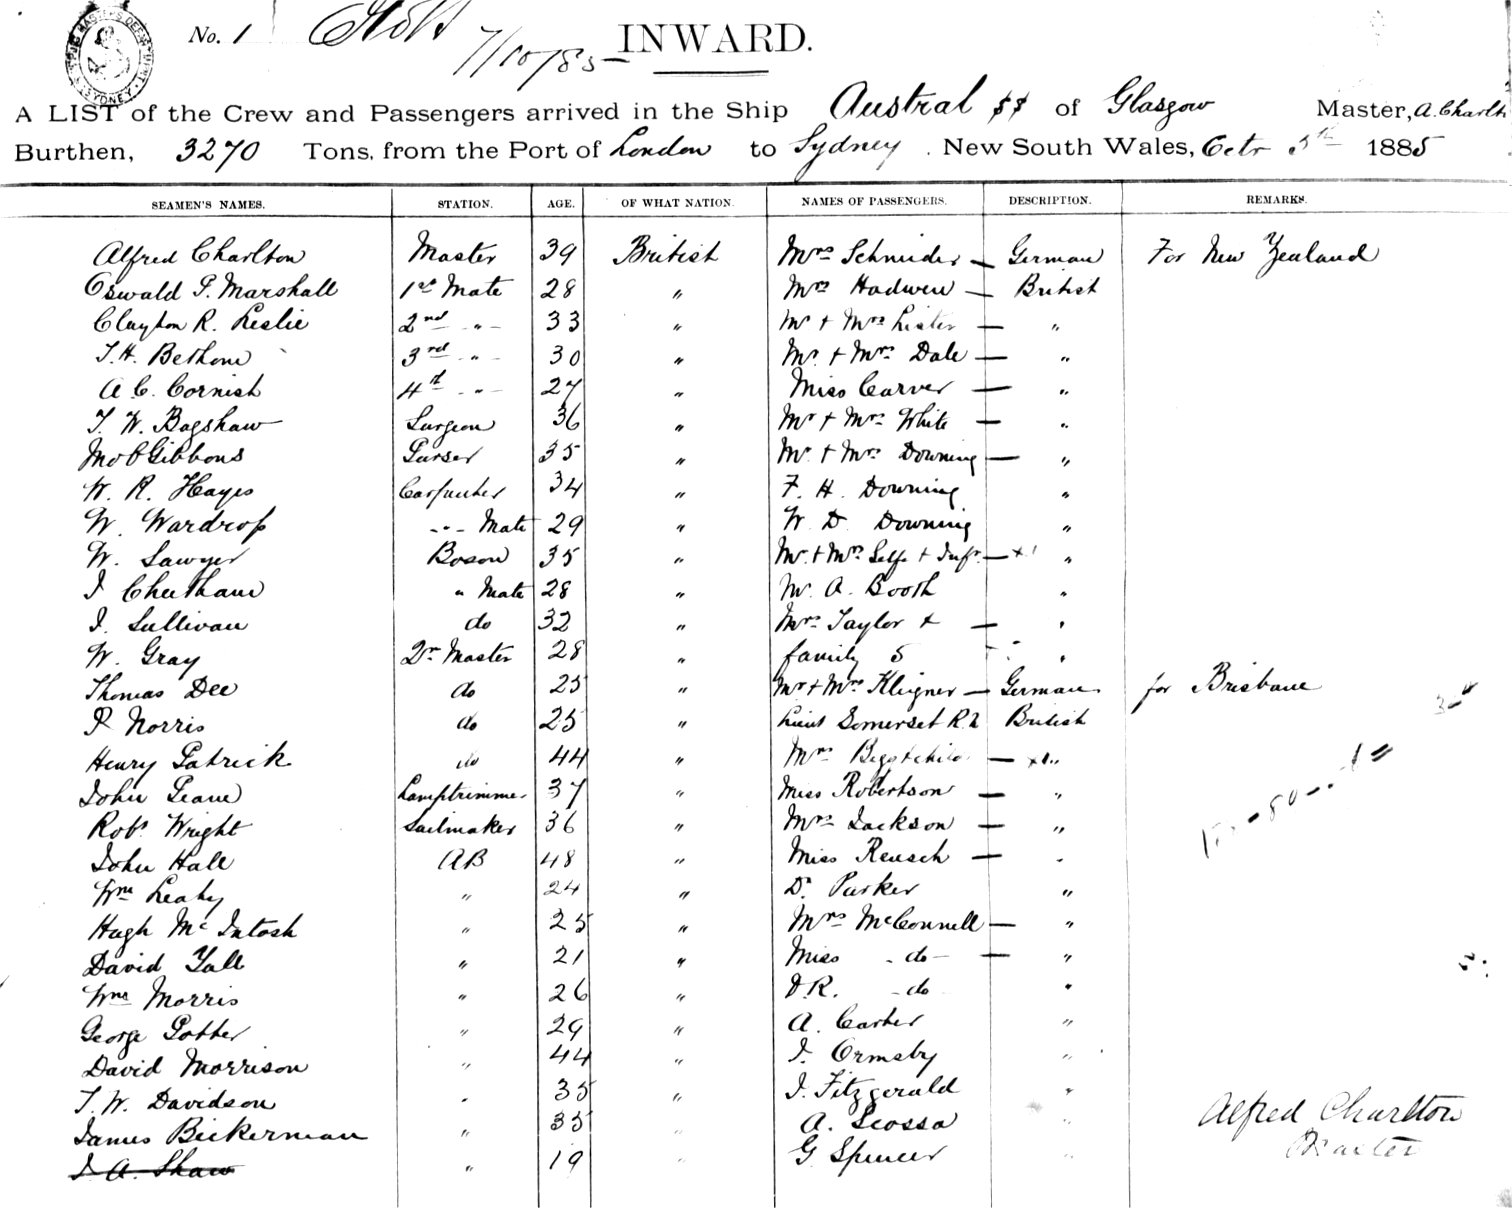 SHIPPING MASTER'S DEPARTMENT SYDNEY
No. 1 7/10/85 INWARD.
A LIST of the Crew and Passengers arrived in the Ship Austral SS of Glasgow Master, A. Charlt
Burthen, 3270 Tons, from the Port of London to Sydney, New South Wales, Octr 5th 1885
SEAMEN'S NAMES. STATION. AGE. OF WHAT NATION. NAMES OF PASSENGERS. DESCRIPTION. REMARKS.
Alfred Charlton Master 39 British Mrs Schnieder — German For New Zealand
Oswald P. Marshall 1st Mate 28 " Mrs Hadwen — British
Clayton R. Leslie 2nd -"- 33 " Mr + Mrs Lister — "
T.H. Bethone 3rd -"- 30 " Mr + Mrs Dale — "
A C. Cornish 4th -"- 27 " Miss Carver — "
T. W. Bagshaw Surgeon 36 " Mr + Mrs White — "
Gibbons Purser 35 " Mr + Mrs Downing — "
W. R. Hayes Carpenter 34 " F. H. Downing "
W. Wardrop -"- Mate 29 " W D Downing "
W. Sawyer Boson 35 " Mr + Mrs Selfe + Inft — "
J Cheetham " Mate 28 " Mr A. Booth "
J. Sullivan do 32 " Mrs Taylor + — "
W. Gray Qr Master 28 " family 5 "
Thomas Dee do 25 " Mr + Mrs Kligner — German for Brisbane
P Norris do 25 " Lieut Somerset R.N British
Henry Patrick do 44 " Mrs —
John Peane Lamptrimmer 37 " Miss Robertson — "
Robt Wright Sailmaker 36 " Mrs Jackson — "
John Hall AB 48 " Miss Reusch — "
Wm Leahy " 24 " Dr Parker "
Hugh McIntosh " 25 " Mrs McConnell — "
David Yall " 21 " Miss - do - — "
Wm Morris " 26 " D.R. - do "
George Potter " 29 " A. Carter "
David Morrison " 44 " J. Ormsby "
T. W. Davidson " 35 " J. Fitzgerald "
James Bickerman " 35 " A. Scossa "
J. A. Shaw " 19 " G Spencer "
Alfred Charlton
Master